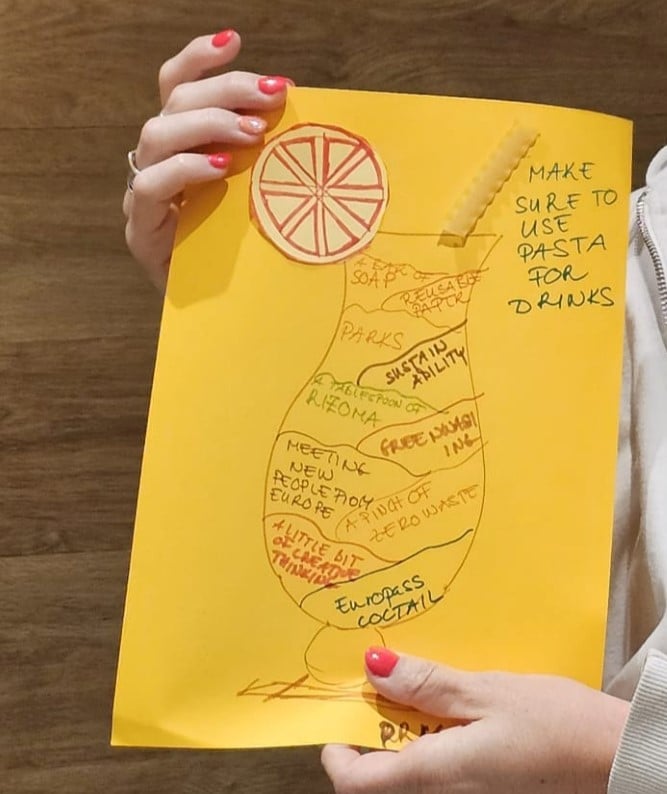 MAKE
SURE TO
USE
PASTA
FOR
DRINKS
SOAP
REUSABLE
PAPER
PARKS
SUSTAIN
ABILITY
A TABLESPOON OF
RIZOMA
GREENWASH
ING
MEETING
NEW
PEOPLE FROM
EUROPE
A PINCH OF
ZERO WASTE
A LITTLE BIT
OF CREATIVE
THINKING
Europass
COCTAIL